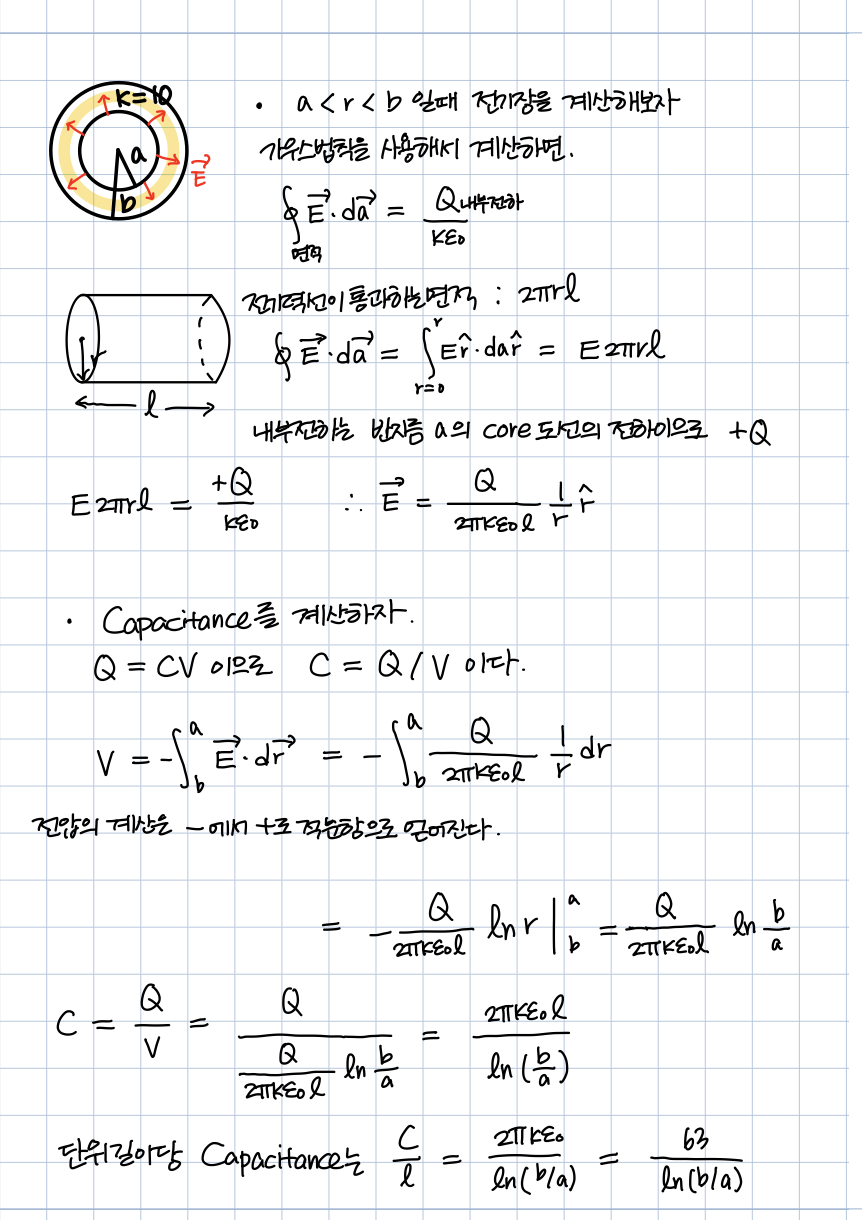 K=10
a
b
E⃗
· a < r < b 일때 전기장을 계산해보자
가우스법칙을 사용해서 계산하면.
∮면적 E⃗·da⃗ = Q내부전하 / Kε₀
전기력선이 통과하는면적 : 2πrl
r
l
∮ E⃗·da⃗ = ∫_{r=0}^{r} E r̂·da r̂ = E 2πrl
내부전하는 반지름 a의 core 도선의 전하이므로 +Q
E 2πrl = +Q / Kε₀ ∴ E⃗ = Q / 2πKε₀l 1/r r̂
· Capacitance를 계산하자.
Q = CV 이므로 C = Q / V 이다.
V = -∫_b^a E⃗·dr⃗ = -∫_b^a Q / 2πKε₀l 1/r dr
전압의 계산은 -에서 +로 적분함으로 얻어진다.
= - Q / 2πKε₀l ln r |_b^a = Q / 2πKε₀l ln b/a
C = Q/V = Q / (Q / 2πKε₀l ln b/a) = 2πKε₀l / ln(b/a)
단위길이당 Capacitance는 C/l = 2πKε₀ / ln(b/a) = 63 / ln(b/a)